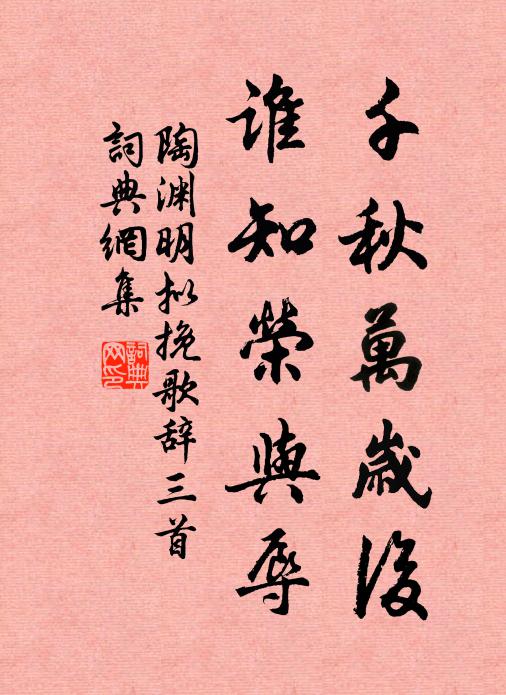 千秋萬歲後
誰知榮與辱
陶渊明拟挽歌辞三首
詞典網集
詞典网印